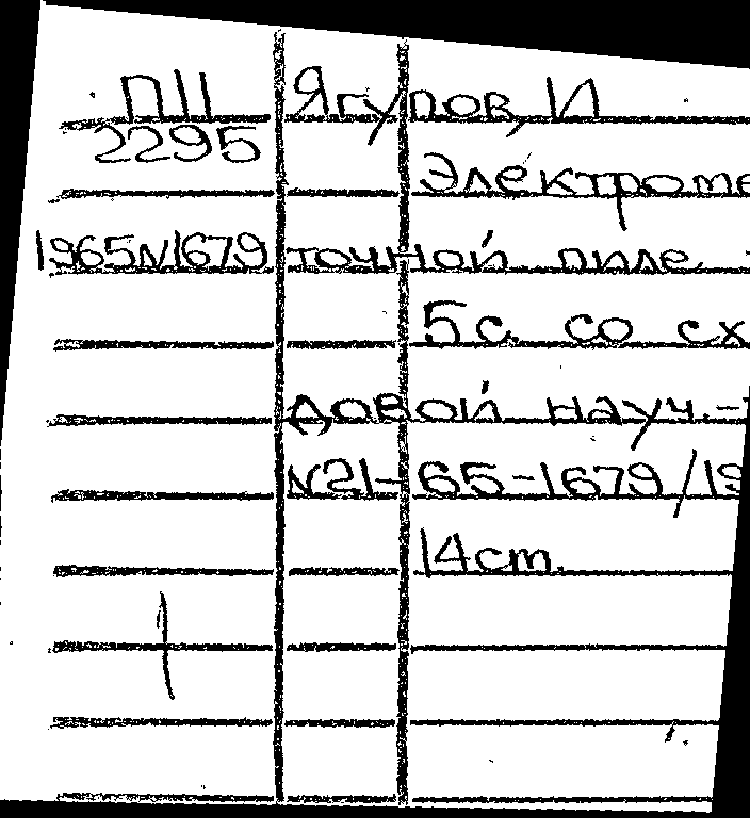 П11 Ягупов, И
2295
Электроме
1965 N1679 точной пиле.
5с. со сх
довой науч.-
N21-65-1679/19
14cm.